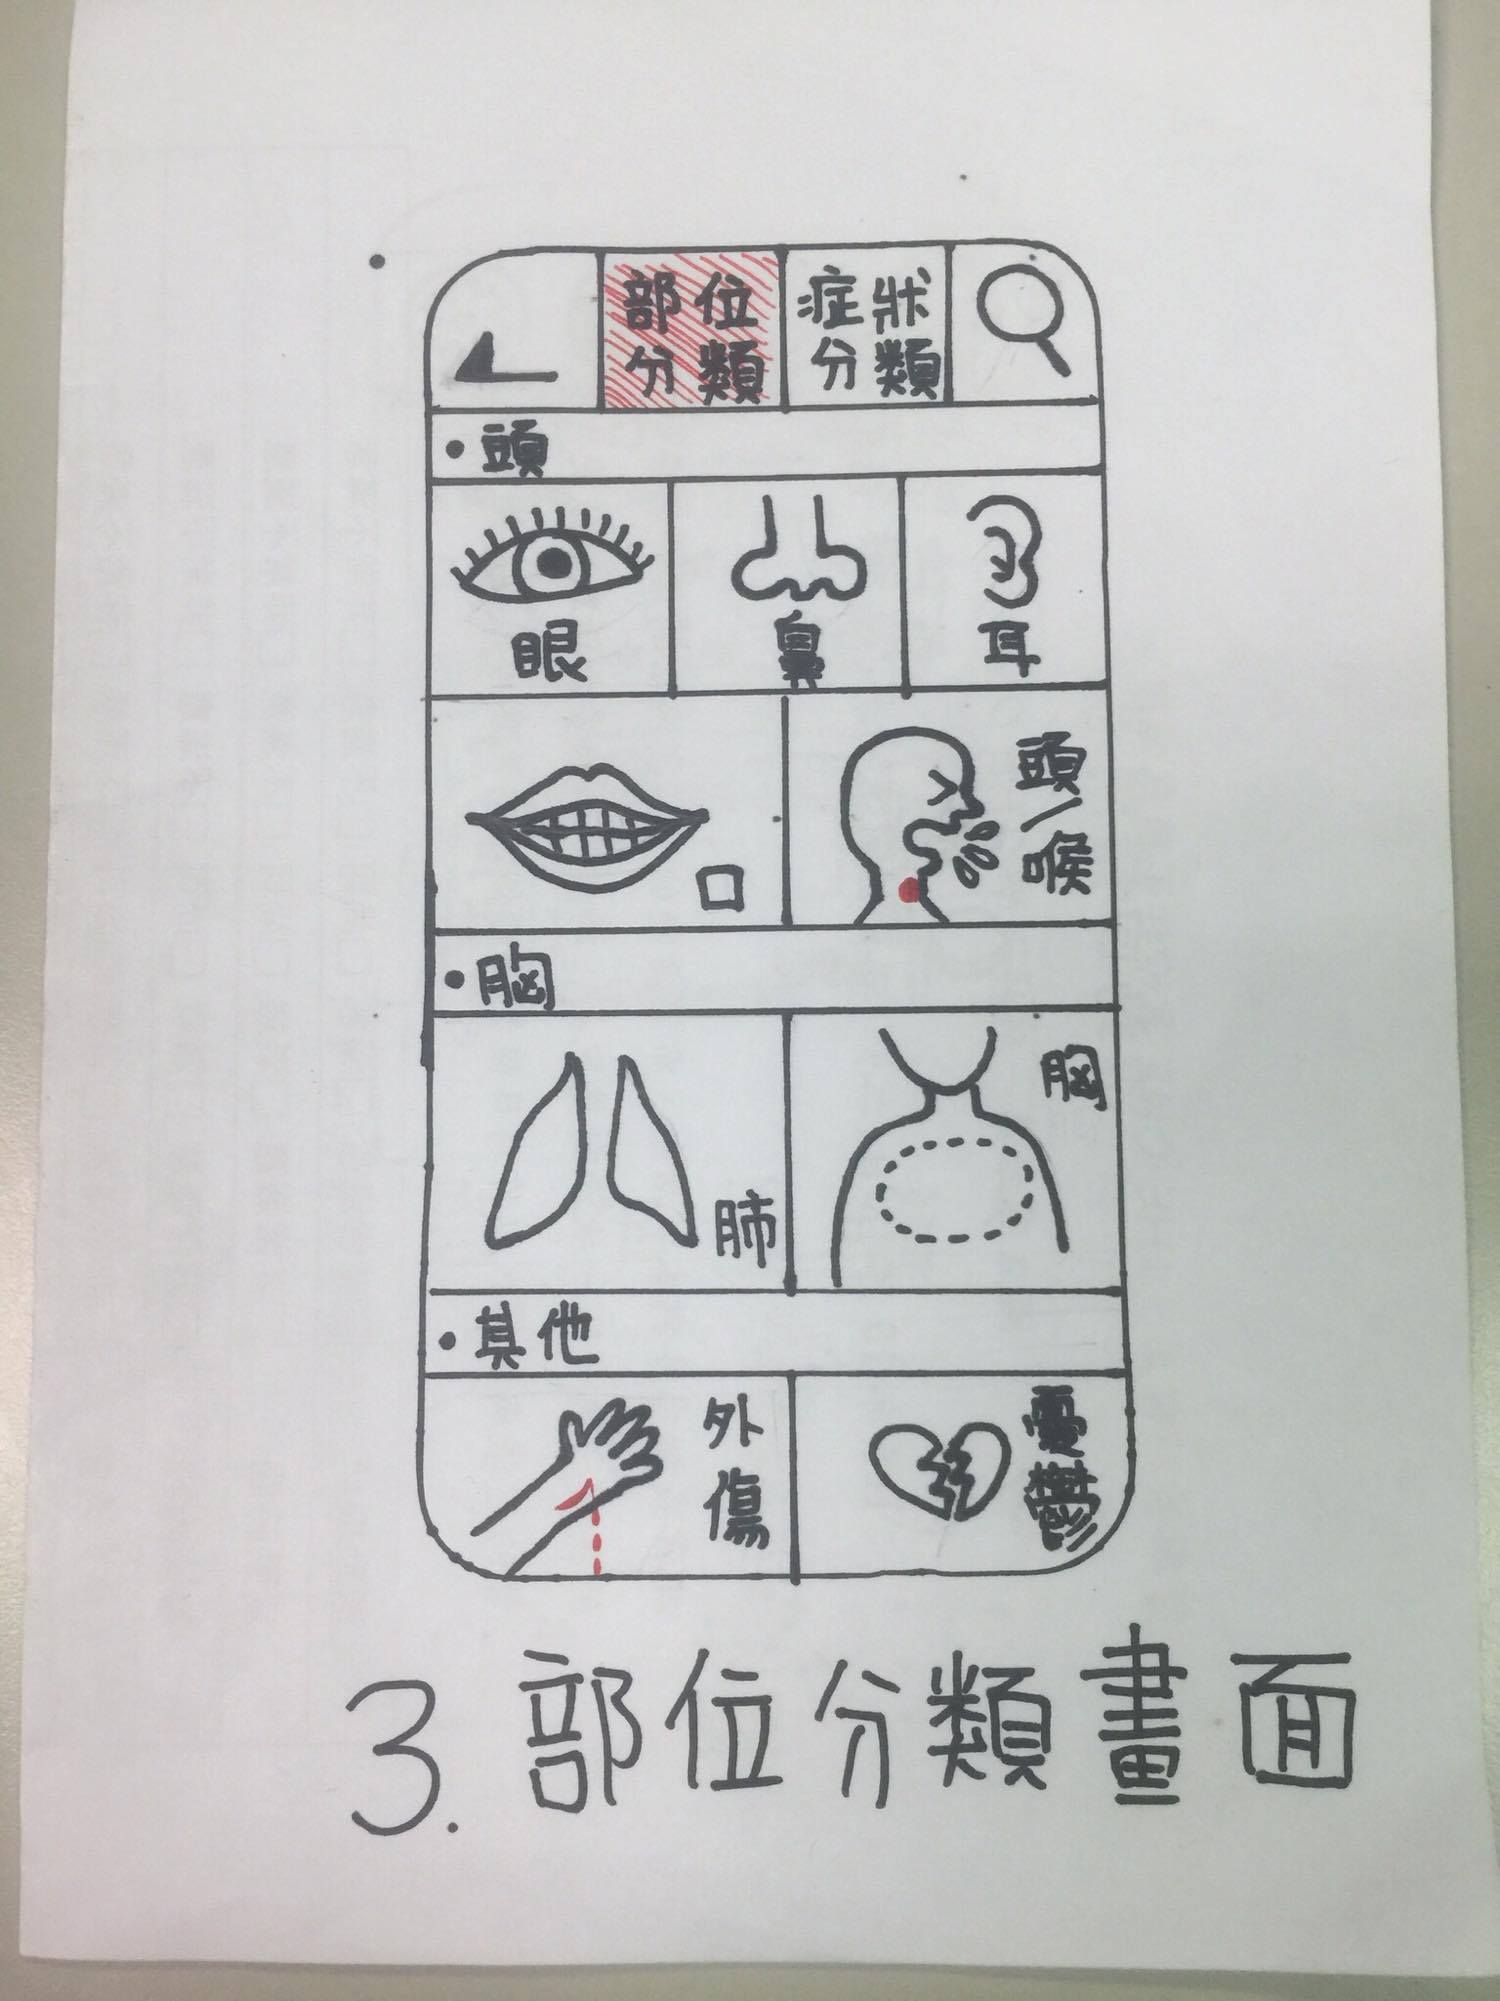 部位
分類
症狀
分類
•頭
眼
鼻
耳
口
頭/喉
•胸
肺
胸
•其他
外傷
憂鬱
3.部位分類畫面